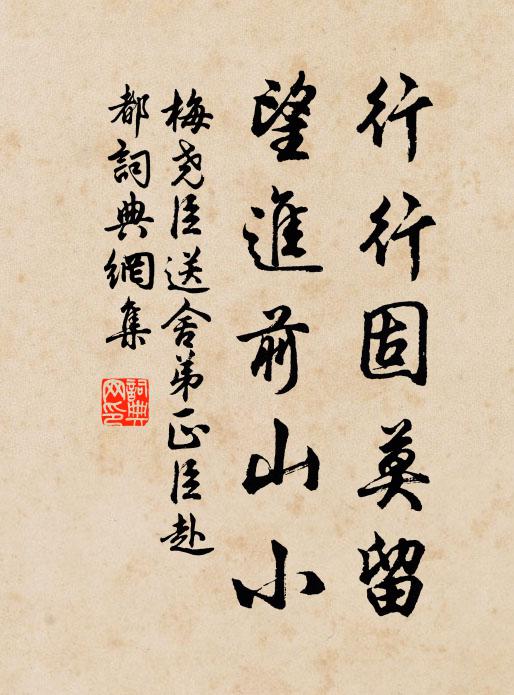 行行固莫留
望進前山小
梅尧臣送舍弟正臣赴
都詞典網集
詞典
网印